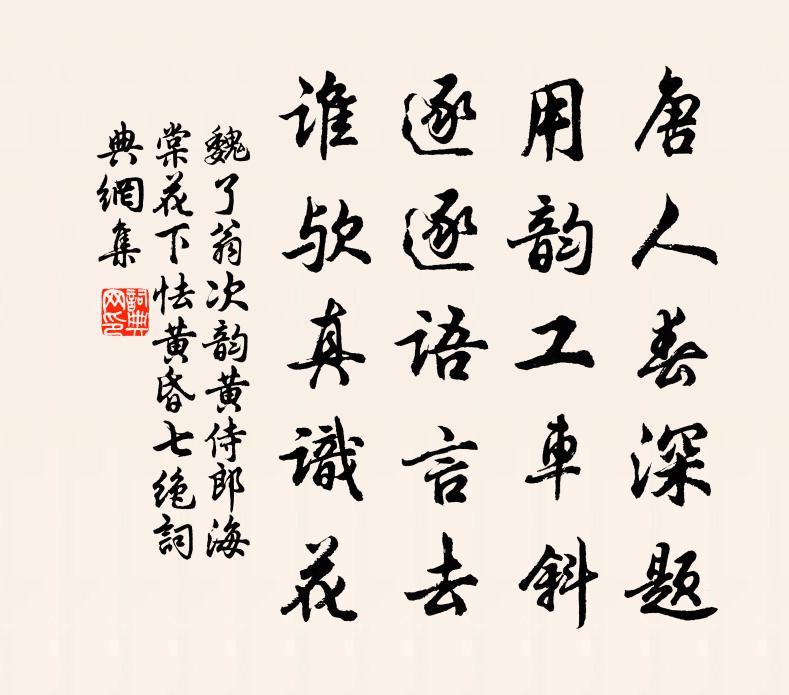 唐人春深题
用韵工車斜
逐逐語言去
谁欤真識花
魏了翁次韵黄侍郎海
棠花下怯黄昏七绝詞
典網集
詞典
网印